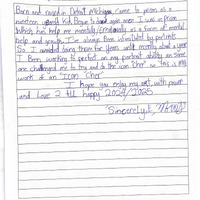 Born and raised in Detroit Michigan, came to prison as a
nineteen year old kid. Began to draw again once I was in prison
Which has help me mentally/Emotionally as a form of mental
help and growth. I've always Been intimitated by portraits
So I avoided doing them for years until months about a year
I Been working to perfect on my portrait ability so some
one challenged me to try and do the icon Cher so this is my
work of an "Iron" "Cher"
I hope you enjoy my art, with power
and Love 2 All happy 2024/2025
Sincerely,